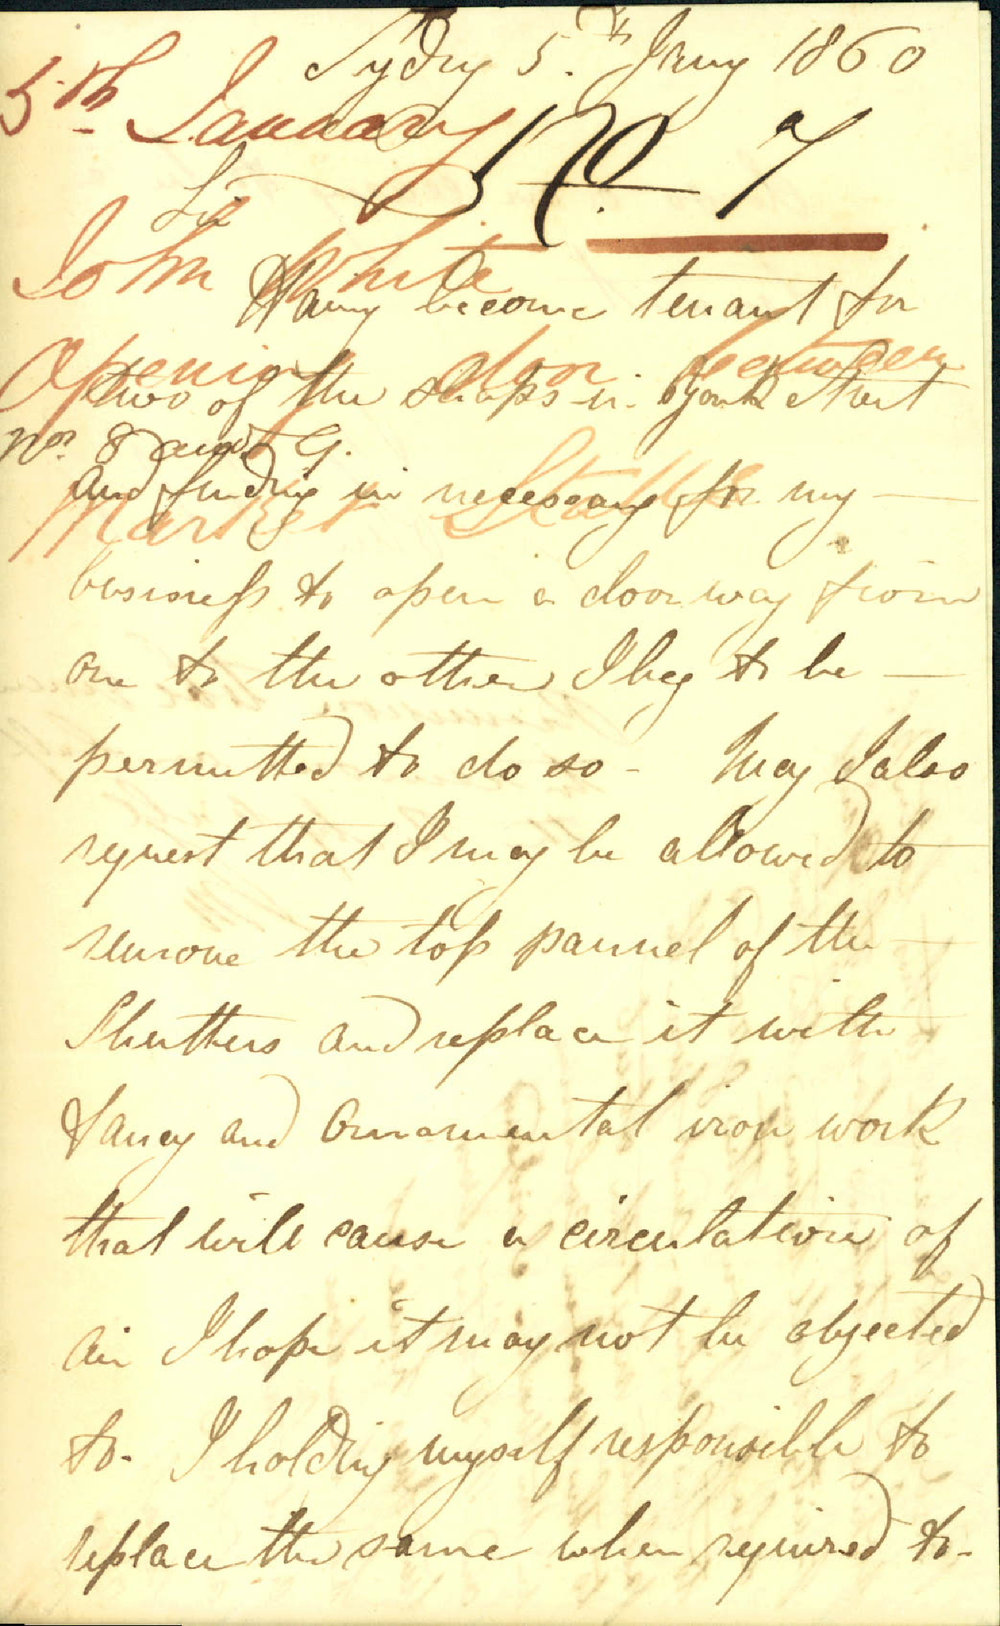 Sydny 5.th Jany 1860
5th January
170 7
Sir
John White
Having become tenant for
Opening door between
two of the shops in York Street
Nos. 8 and 9.
and finding it necessary for my
Market Stalls
business to open a doorway from
one to the other I beg to be
permitted to do so - May I also
request that I may be allowed to
remove the top pannel of the
Shutters and replace it with
fancy and Ornamental iron work
that will cause a circulation of
air I hope it may not be objected
to. I holding myself responsible to
replace the same when required to-